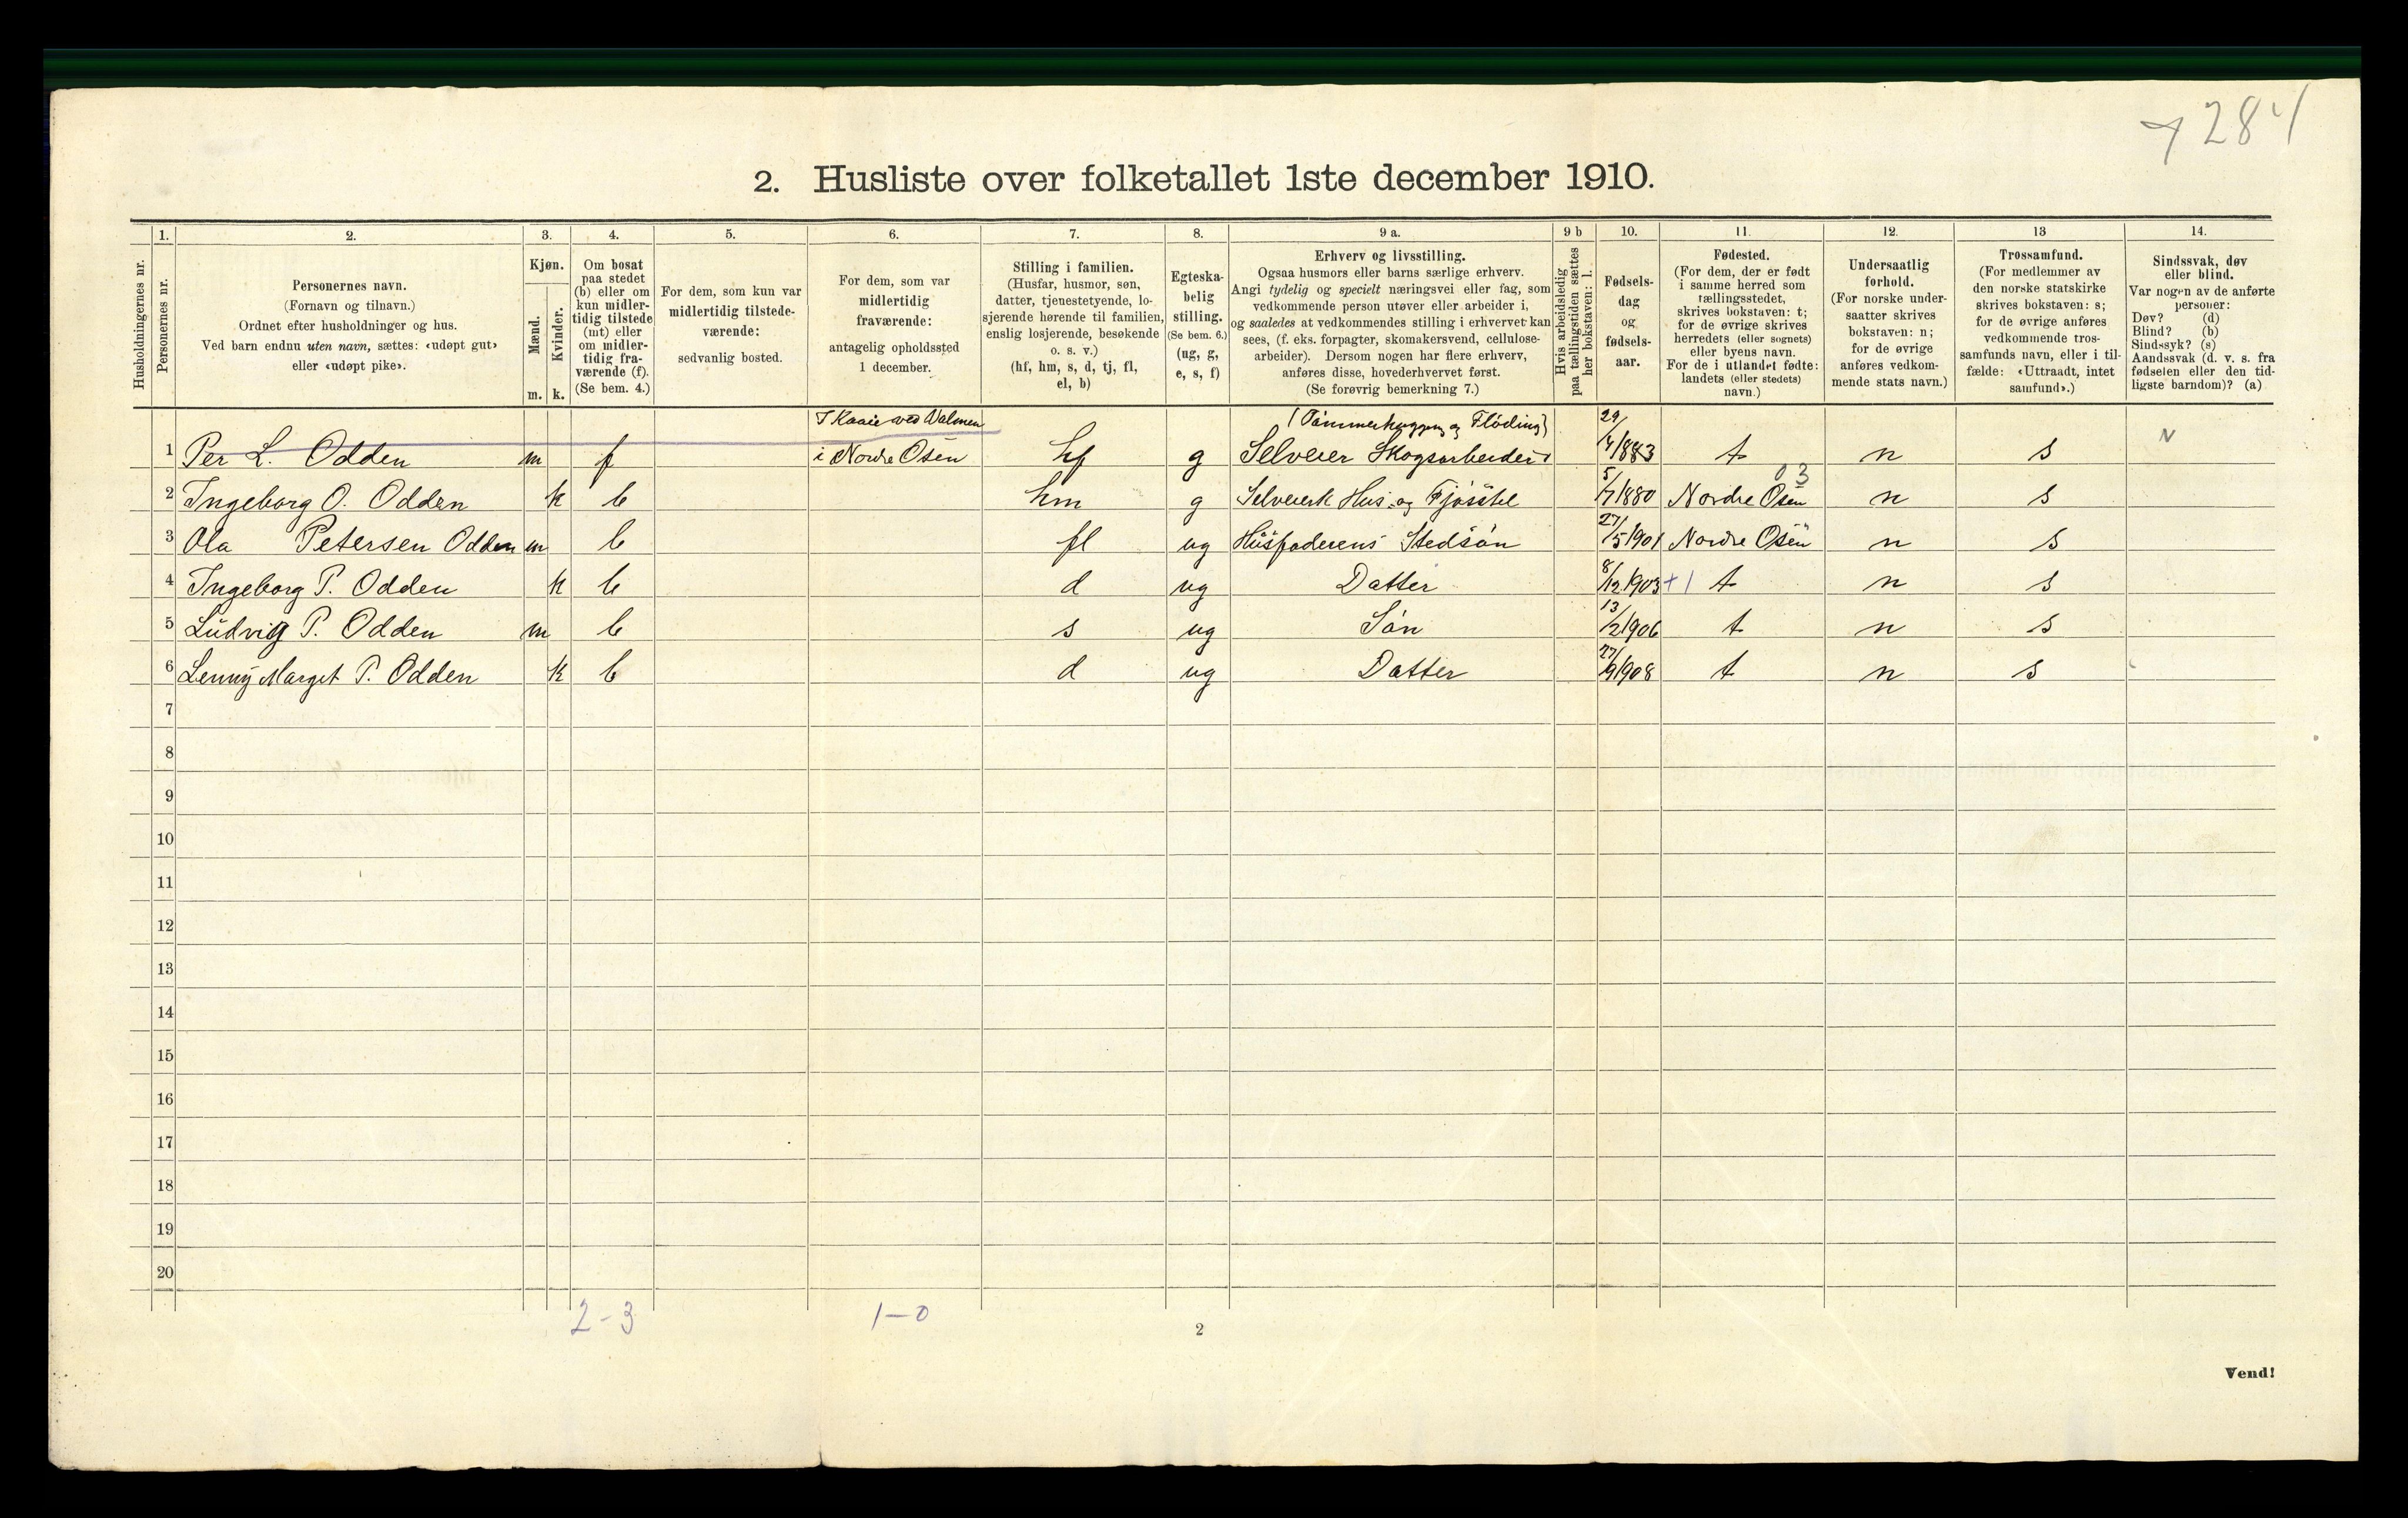 7284
2. Husliste over folketallet 1ste december 1910.
Husholdningernes nr.
1.
Personernes nr.
2.
Personernes navn.
(Fornavn og tilnavn.)
Ordnet efter husholdninger og hus.
Ved barn endnu uten navn, sættes: «udøpt gut»
eller «udøpt pike».
3.
Kjøn.
Mænd. Kvinder.
m. k.
4.
Om bosat
paa stedet
(b) eller om
kun midler-
tidig tilstede
(mt) eller
om midler-
tidig fra-
værende (f).
(Se bem. 4.)
5.
For dem, som kun var
midlertidig tilstede-
værende:
sedvanlig bosted.
6.
For dem, som var
midlertidig
fraværende:
antagelig opholdssted
1 december.
7.
Stilling i familien.
(Husfar, husmor, søn,
datter, tjenestetyende, lo-
sjerende hørende til familien,
enslig losjerende, besøkende
o. s. v.)
(hf, hm, s, d, tj, fl,
el, b)
8.
Egteska-
belig
stilling.
(Se bem. 6.)
(ug, g,
e, s, f)
9 a.
Erhverv og livsstilling.
Ogsaa husmors eller barns særlige erhverv.
Angi tydelig og specielt næringsvei eller fag, som
vedkommende person utøver eller arbeider i,
og saaledes at vedkommendes stilling i erhvervet kan
sees, (f. eks. forpagter, skomakersvend, cellulose-
arbeider). Dersom nogen har flere erhverv,
anføres disse, hovederhvervet først.
(Se forøvrig bemerkning 7.)
9 b
Hvis arbeidsledig
paa tællingstiden sættes
her bokstaven: l.
10.
Fødsels-
dag
og
fødsels-
aar.
11.
Fødested.
(For dem, der er født
i samme herred som
tællingsstedet,
skrives bokstaven: t;
for de øvrige skrives
herredets (eller sognets)
eller byens navn.
For de i utlandet fødte:
landets (eller stedets)
navn.)
12.
Undersaatlig
forhold.
(For norske under-
saatter skrives
bokstaven: n;
for de øvrige
anføres vedkom-
mende stats navn.)
13
Trossamfund.
(For medlemmer av
den norske statskirke
skrives bokstaven: s;
for de øvrige anføres
vedkommende tros-
samfunds navn, eller i til-
fælde: «Uttraadt, intet
samfund».)
14.
Sindssvak, døv
eller blind.
Var nogen av de anførte
personer:
Døv? (d)
Blind? (b)
Sindssyk? (s)
Aandssvak (d. v. s. fra
fødselen eller den tid-
ligste barndom)? (a)
I Kaaie ved Valmen (Tömmerhugging og Flöding) 29/
1 Per L. Odden m f i Nordre Osen hf g Selveier Skogsarbeider 4/1883 t n s N
03
2 Ingeborg O. Odden k b hm g Selveiersk Hus og Fjösstel 5/7 1880 Nordre Osen n s
3 Ola Petersen Odden m b fl ug Husfaderens Stedsön 27/5 1901 Nordre Osen n s
4 Ingeborg P. Odden k b d ug Datter 8/12 1903 +1 t n s
5 Ludvig P. Odden m b s ug Sön 13/2 1906 t n s
6 Lenny Marget P. Odden k b d ug Datter 27/9 1908 t n s
7
8
9
10
11
12
13
14
15
16
17
18
19
20
2-3 1-0
2
Vend!